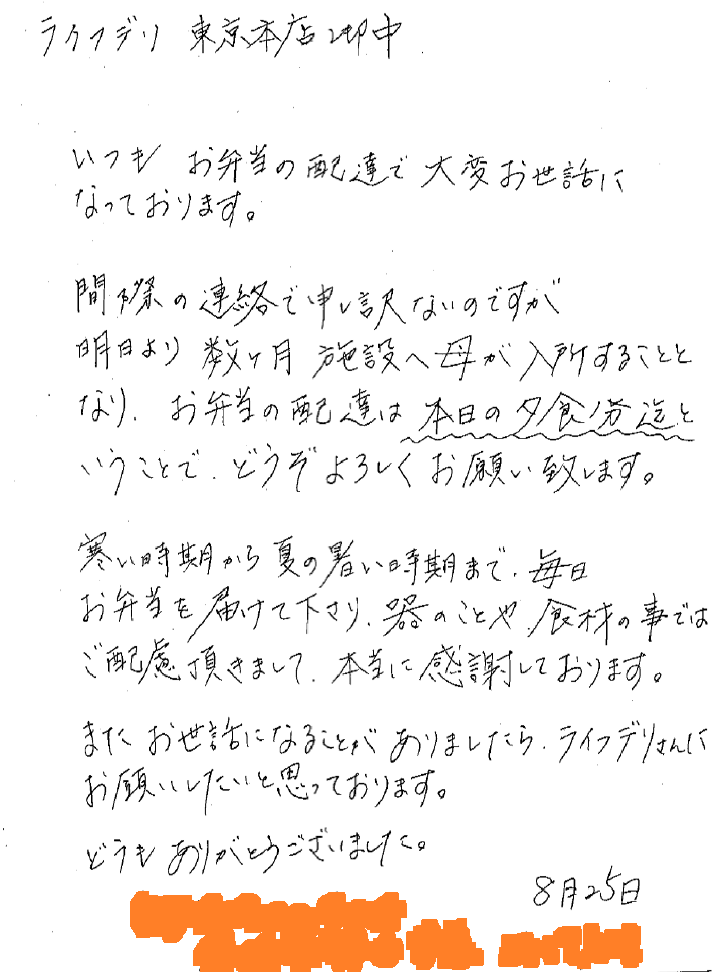 ライフデリ 東京本店 御中
いつも お弁当の配達で 大変お世話に
なっております。
間際の連絡で申し訳ないのですが
明日より 数ヶ月 施設へ母が入所することと
なり、お弁当の配達は 本日の夕食分迄と
いうことで、どうぞよろしくお願い致します。
寒い時期から夏の暑い時期まで、毎日
お弁当を届けて下さり、器のことや、食材の事では
ご配慮頂きまして、本当に感謝しております。
また お世話になることが ありましたら、ライフデリさんに
お願いしたいと思っております。
どうも ありがとうございました。
8月25日